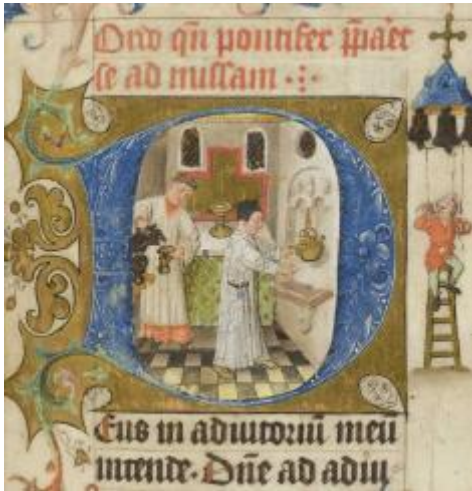 Ordo qn̄ pontifex p̄pa͛et
se ad missam
Deus in adiutoriū meū
intende. Dn̄e ad adiu